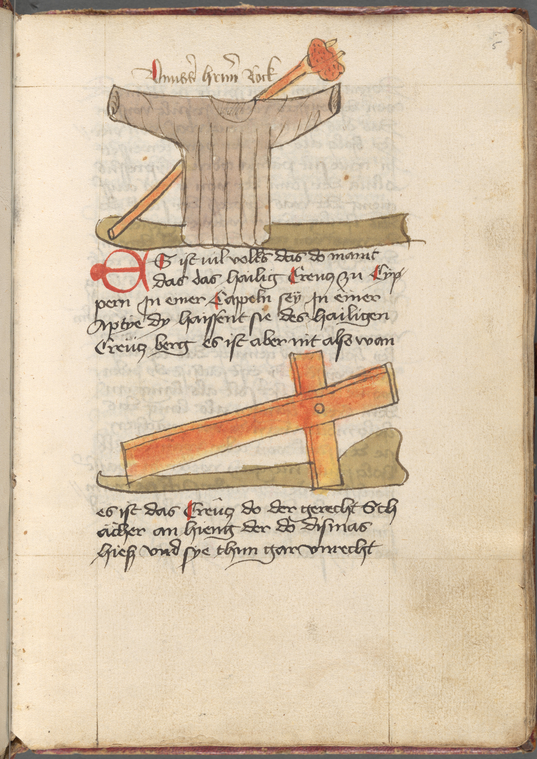 5
Vnnsers herrn Rock
Es ist vil volks das do maint
das das hailig Creucz zu Cyp
pern Jn einer Cappeln sey Jn einer
Aptye dy haissent sie des hailigen
Creücz berg es ist aber nit also wan
es ist das Creücz do der gerecht Sch
acher an hieng der do dismas
hiess vnd sye thun gar vnrecht